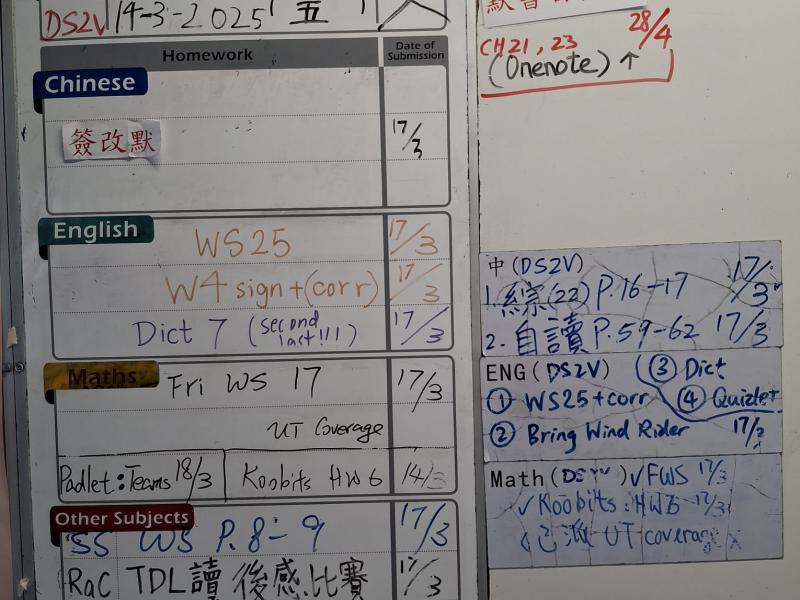 DS2V 14-3-2025 五
Homework Date of Submission
Chinese
簽改默 17/3
English
WS25 17/3
W4 sign+(corr) 17/3
Dict 7 (second last!!!) 17/3
Maths
Fri WS 17 17/3
UT Coverage
Padlet:Teams 18/3 Koobits HW6 14/3
Other Subjects
SS WS P.8-9 17/3
RaC TDL讀後感比賽 17/3
28/4
CH21, 23
(Onenote) ↑
中(DS2V)
1. 綜(22) P.16-17 17/3
2. 自讀 P.59-62 17/3
ENG (DS2V) ③ Dict
① WS25+corr ④ Quizlet
② Bring Wind Rider 17/3
Math ( ) ✓FWS 17/3
✓Koobits:HW6 17/3
已派 UT coverage